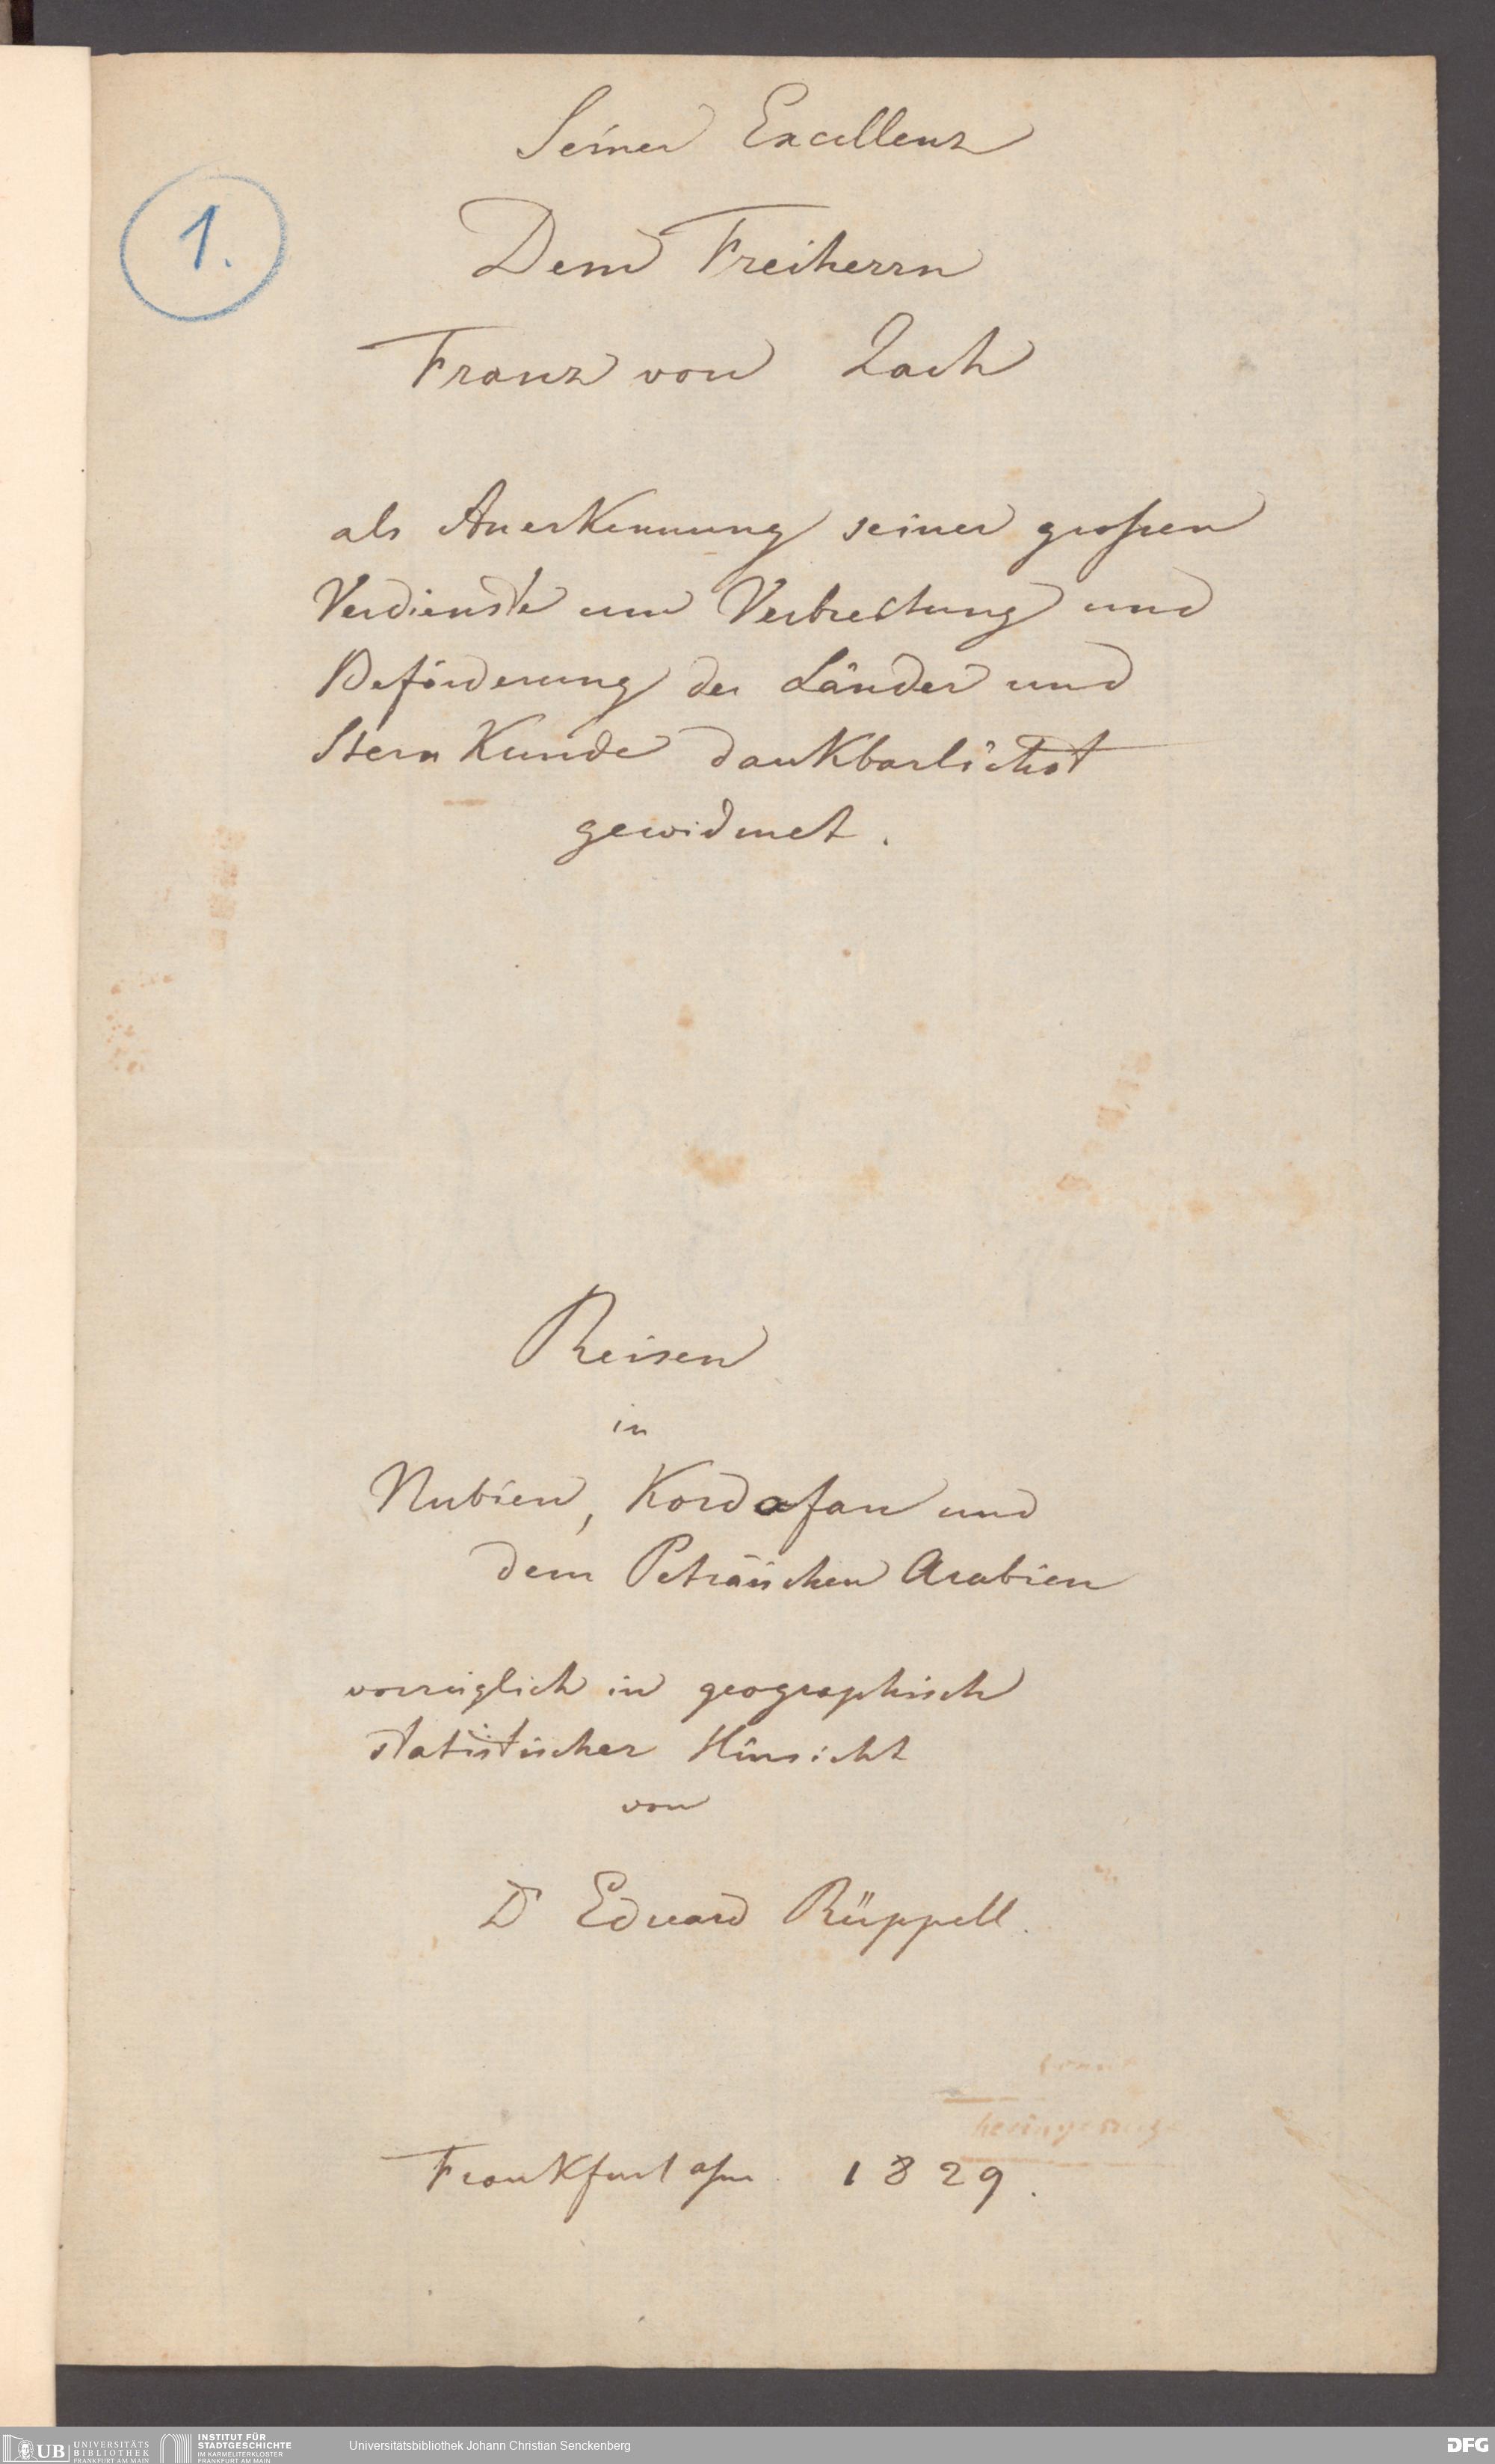 Seiner Excellenz
1.
Dem Freiherrn
Franz von Zach
als Anerkennung seiner großen
Verdienste um Verbreitung und
Beförderung der Länder und
Stern Kunde dankbarlichst
gewidmet.
Reisen
in
Nubien, Kordofan und
dem Peträischen Arabien
vorzüglich in geographisch
statistischer Hinsicht
von
Dr Eduard Rüppell.
Frankfurt a/m. 1829.
UB UNIVERSITÄTS
BIBLIOTHEK
FRANKFURT AM MAIN
INSTITUT FÜR
STADTGESCHICHTE
IM KARMELITERKLOSTER
FRANKFURT AM MAIN
Universitätsbibliothek Johann Christian Senckenberg
DFG